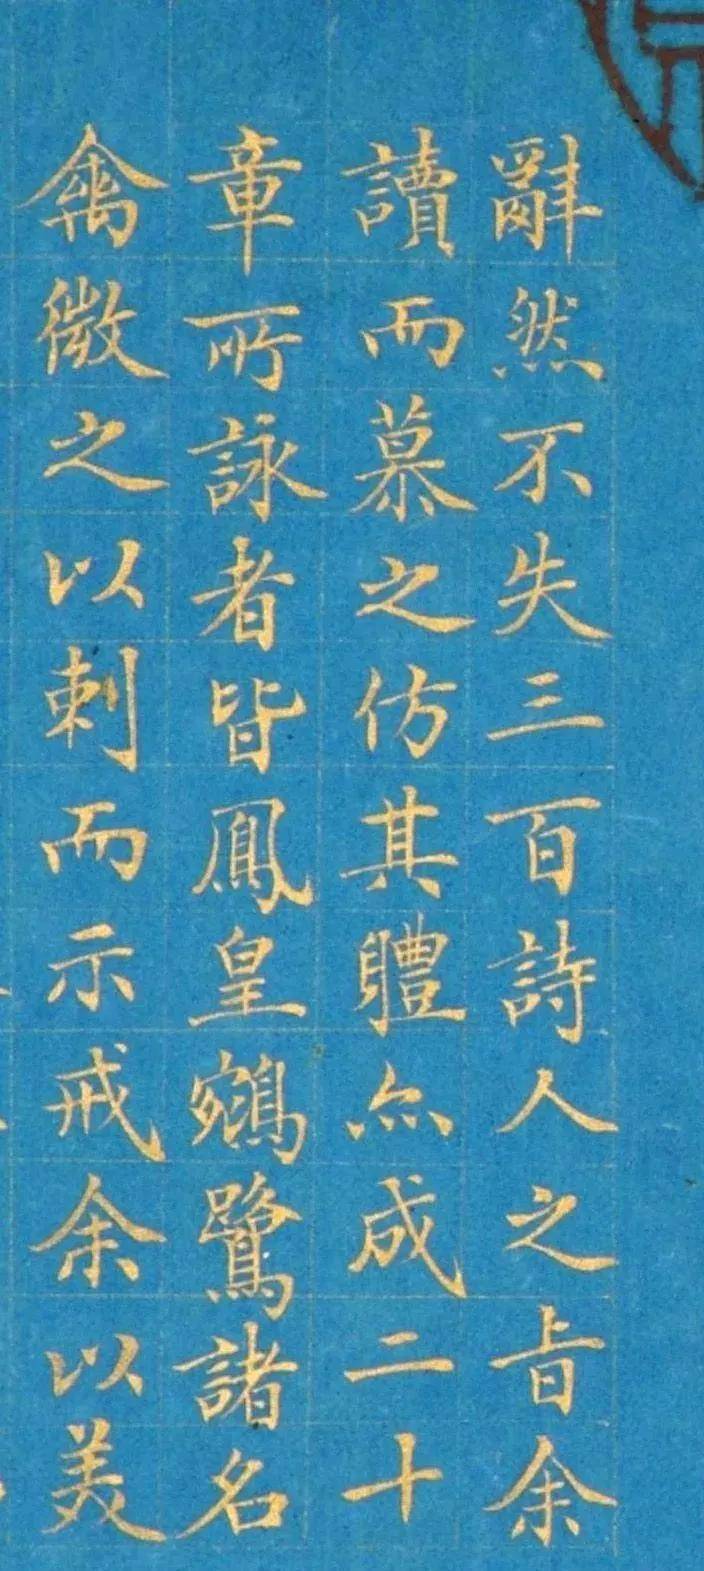 辭然不失三百詩人之旨余
讀而慕之仿其體亦成二十
章所詠者皆鳳皇鵷鷺諸名
禽微之以刺而示戒余以美